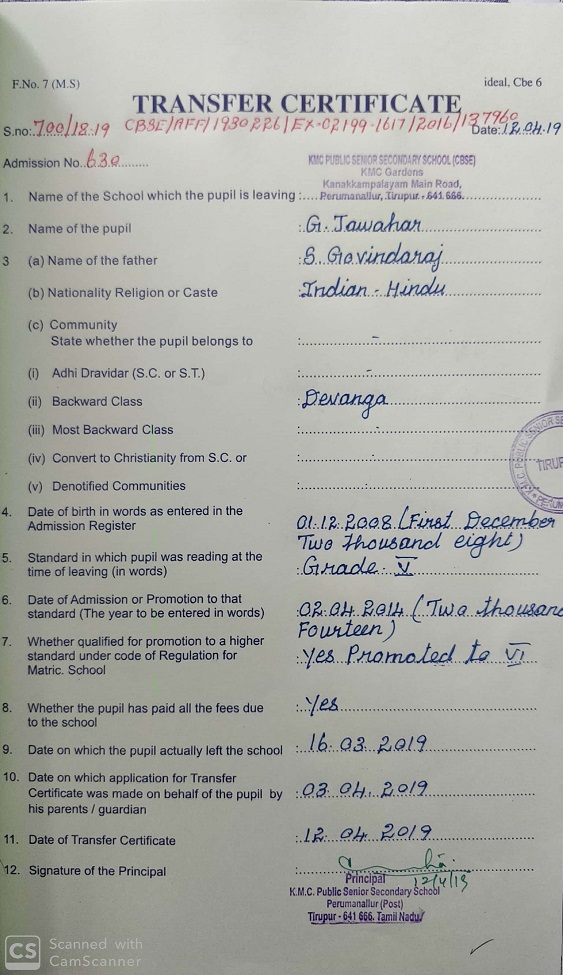 F.No. 7 (M.S)
ideal, Cbe 6
TRANSFER CERTIFICATE
S.no: 700/18-19 CBSE/AFF/1930226/EX-02199-1617/2016/137960 Date: 12.04.19
Admission No. 630
KMC PUBLIC SENIOR SECONDARY SCHOOL (CBSE)
KMC Gardens
Kanakkampalayam Main Road,
1. Name of the School which the pupil is leaving : Perumanallur, Tirupur - 641 666.
2. Name of the pupil : G. Jawahar
3 (a) Name of the father : S. Govindaraj
(b) Nationality Religion or Caste : Indian - Hindu
(c) Community
State whether the pupil belongs to : -
(i) Adhi Dravidar (S.C. or S.T.) : -
(ii) Backward Class : Devanga
(iii) Most Backward Class :
(iv) Convert to Christianity from S.C. or :
(v) Denotified Communities :
4. Date of birth in words as entered in the
Admission Register 01.12.2008 (First December
Two thousand eight)
5. Standard in which pupil was reading at the
time of leaving (in words) : Grade - V
6. Date of Admission or Promotion to that
standard (The year to be entered in words) : 02.04.2014 (Two thousand
Fourteen)
7. Whether qualified for promotion to a higher
standard under code of Regulation for : Yes Promoted to VI
Matric. School
8. Whether the pupil has paid all the fees due : Yes
to the school
9. Date on which the pupil actually left the school : 16.03.2019
10. Date on which application for Transfer
Certificate was made on behalf of the pupil by : 03.04.2019
his parents / guardian
11. Date of Transfer Certificate : 12.04.2019
12. Signature of the Principal :
Principal 12/4/19
K.M.C. Public Senior Secondary School
Perumanallur (Post)
Tirupur - 641 666. Tamil Nadu
CS Scanned with
CamScanner